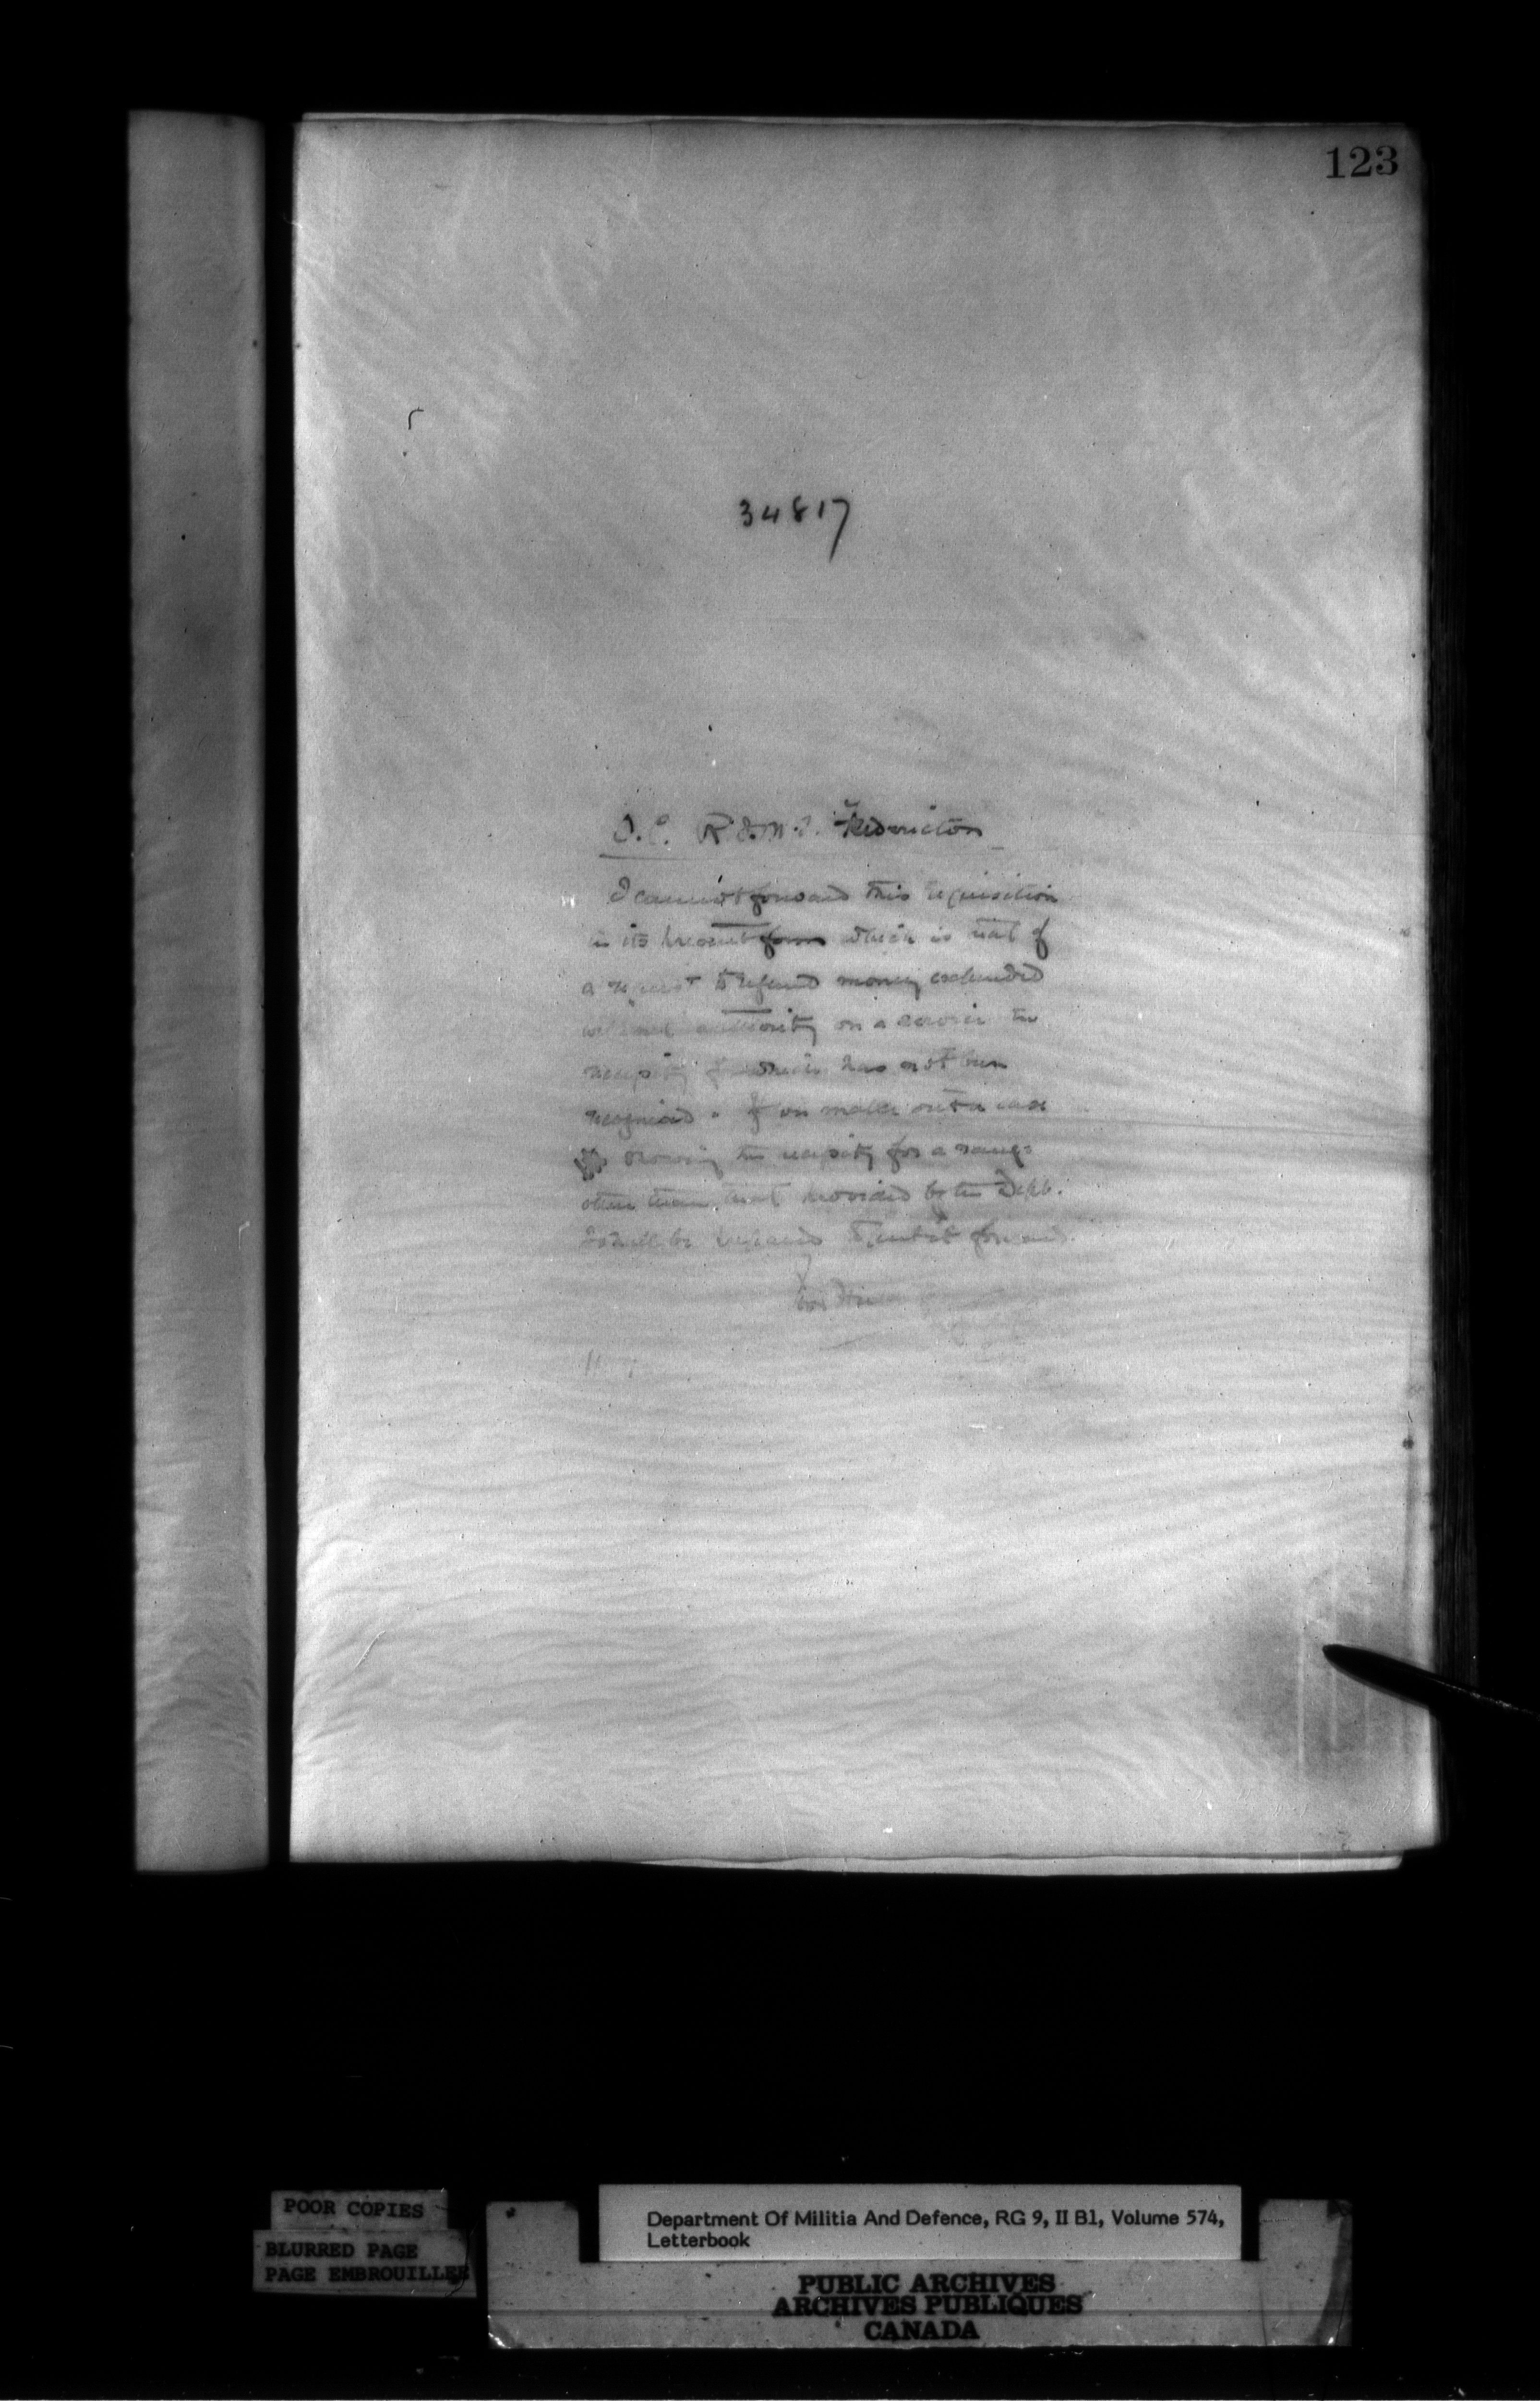 123
34817
Fredericton
I cannot forward this requisition
in its present form which is that of
a request to refund money expended
without authority on a service the
necessity of which has not been
recognised. If you make out a case
showing the necessity for a range
other than that provided by the Dept.
I shall be prepared to put it forward.
POOR COPIES
BLURRED PAGE
PAGE EMBROUILLEE
Department Of Militia And Defence, RG 9, II B1, Volume 574,
Letterbook
PUBLIC ARCHIVES
ARCHIVES PUBLIQUES
CANADA